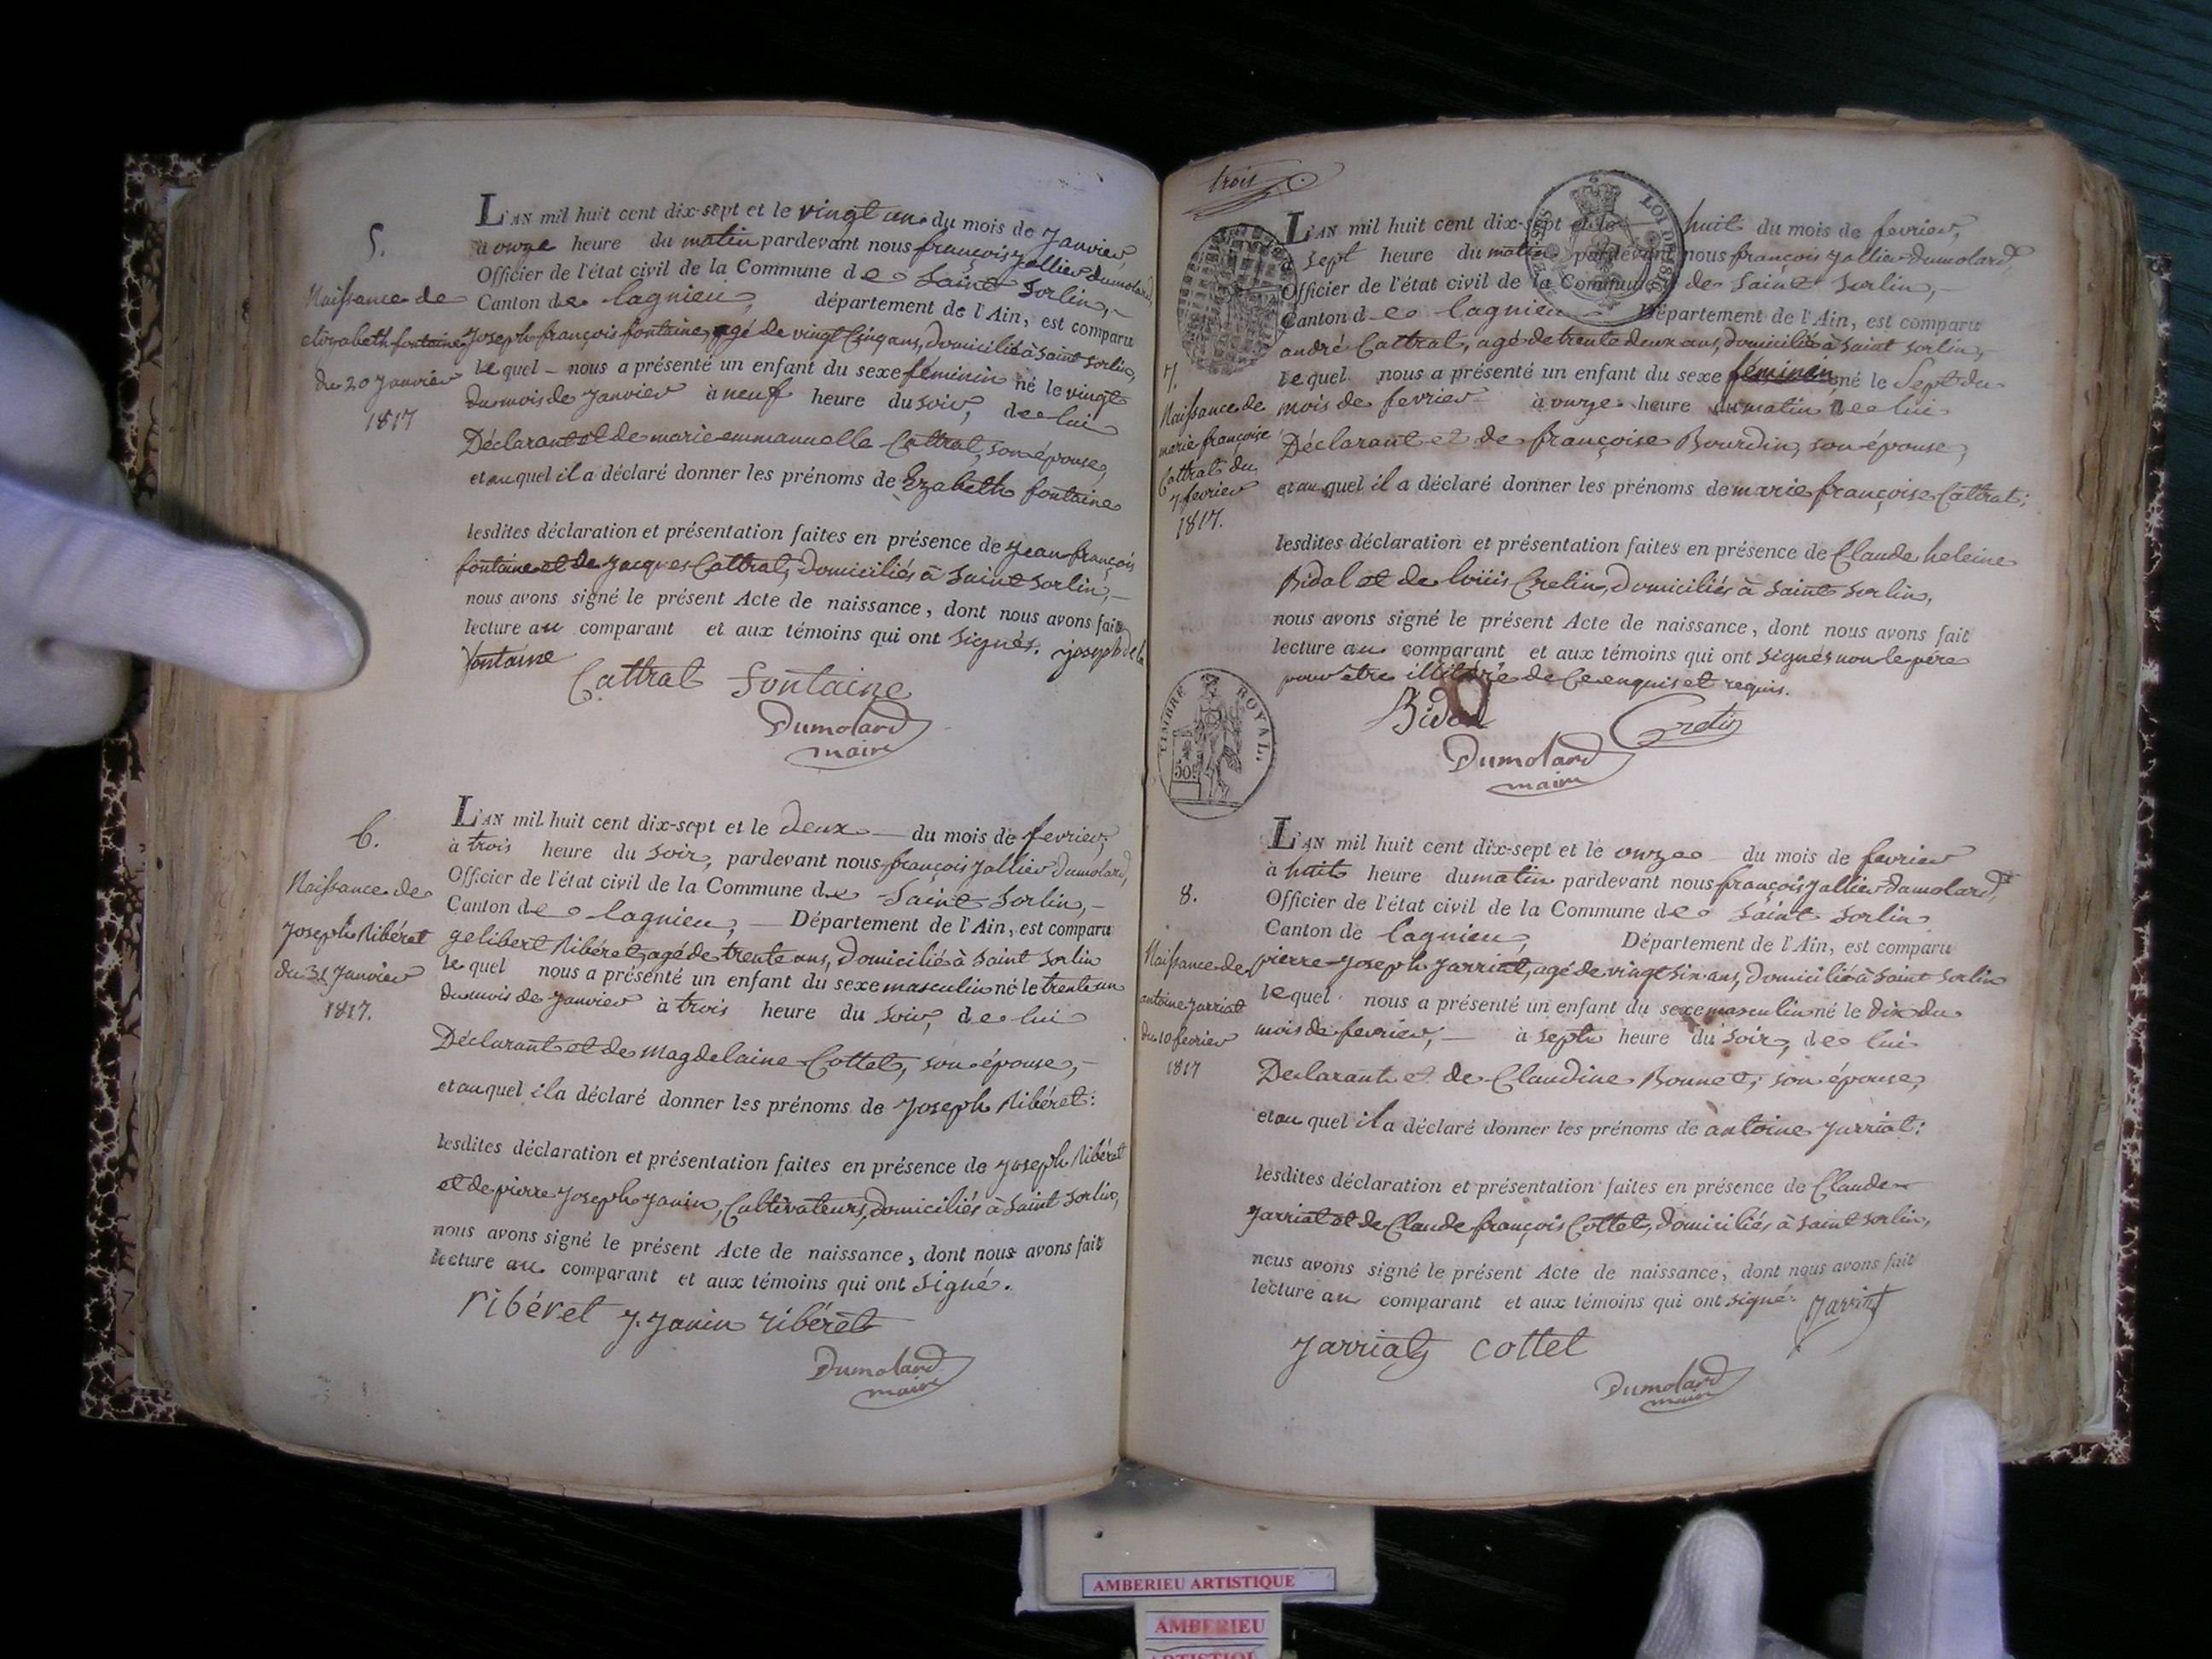 5.
Naissance de
elizabeth fontaine
du 20 Janvier
1817
L'AN mil huit cent dix-sept et le vingt un du mois de Janvier
à onze heure du matin pardevant nous françois Jallier Dumolard,
Officier de l'état civil de la Commune de Saint Sorlin,
Canton de lagnieu, département de l'Ain, est comparu
Joseph françois fontaine, agé de vingt Cinq ans, domicilié à Saint Sorlin,
lequel nous a présenté un enfant du sexe féminin né le vingt
du mois de Janvier à neuf heure du soir, de lui
Déclarant et de marie emmanuelle Cattrat, son épouse,
et auquel il a déclaré donner les prénoms de Ezabeth fontaine
lesdites déclaration et présentation faites en présence de Jean françois
fontaine et de Jacques Cattrat, domiciliés à Saint Sorlin,
nous avons signé le présent Acte de naissance, dont nous avons fait
lecture au comparant et aux témoins qui ont signés. joseph de la
fontaine
Cattrat fontaine
Dumolard
maire
6.
Naissance de
Joseph Ribéret
du 31 Janvier
1817.
L'AN mil huit cent dix-sept et le deux du mois de fevrier,
à trois heure du soir, pardevant nous françois Jallier Dumolard,
Officier de l'état civil de la Commune de Saint Sorlin,
Canton de lagnieu, Département de l'Ain, est comparu
gelibert Ribéret, agé de trente ans, domicilié à Saint Sorlin
lequel nous a présenté un enfant du sexe masculin né le trente un
du mois de Janvier à trois heure du soir, de lui
Déclarant et de Magdelaine Cottet, son épouse,
et auquel il a déclaré donner les prénoms de Joseph Ribéret:
lesdites déclaration et présentation faites en présence de Joseph Ribéret
et de pierre Joseph Janin, Cultivateurs, domiciliés à Saint Sorlin,
nous avons signé le présent Acte de naissance, dont nous avons fait
lecture au comparant et aux témoins qui ont signé.
ribéret J. Janin ribéret
Dumolard
maire
trois
LOI DE 1816
7.
Naissance de
marie françoise
Cattrat du
7 fevrier
1817.
L'AN mil huit cent dix-sept et le huit du mois de fevrier,
à sept heure du matin pardevant nous françois Jallier Dumolard,
Officier de l'état civil de la Commune de Saint Sorlin,
Canton de lagnieu Département de l'Ain, est comparu
andré Cattrat, agé de trente deux ans, domicilié à Saint Sorlin,
lequel nous a présenté un enfant du sexe féminin, né le Sept du
mois de fevrier à onze heure du matin de lui
Déclarant et de françoise Bourdin, son épouse,
et auquel il a déclaré donner les prénoms de marie françoise Cattrat:
lesdites déclaration et présentation faites en présence de Claude heleine
Bidal et de loüis Cretin, domiciliés à Saint Sorlin,
nous avons signé le présent Acte de naissance, dont nous avons fait
lecture au comparant et aux témoins qui ont signés non le père
pour être illitéré de Ce enquis et requis.
Bidal Cretin
TIMBRE ROYAL
50c
Dumolard
maire
8.
Naissance de
antoine Jarriat
du 10 fevrier
1817
L'AN mil huit cent dix-sept et le onze du mois de fevrier
à huit heure du matin pardevant nous françois Jallier Dumolard,
Officier de l'état civil de la Commune de Saint Sorlin
Canton de lagnieu, Département de l'Ain, est comparu
pierre Joseph Jarriat, agé de vingt six ans, domicilié à Saint Sorlin
lequel nous a présenté un enfant du sexe masculin né le dix du
mois de fevrier, à sept heure du soir, de lui
Declarant et de Claudine Bonnet, son épouse,
et auquel il a déclaré donner les prénoms de antoine Jarriat:
lesdites déclaration et présentation faites en présence de Claude
Jarriat et de Claude françois Cottet, domiciliés à Saint Sorlin,
nous avons signé le présent Acte de naissance, dont nous avons fait
lecture au comparant et aux témoins qui ont signé. Jarriat
Jarriat Cottet
Dumolard
maire
AMBERIEU ARTISTIQUE
AMBERIEU
ARTISTIQUE